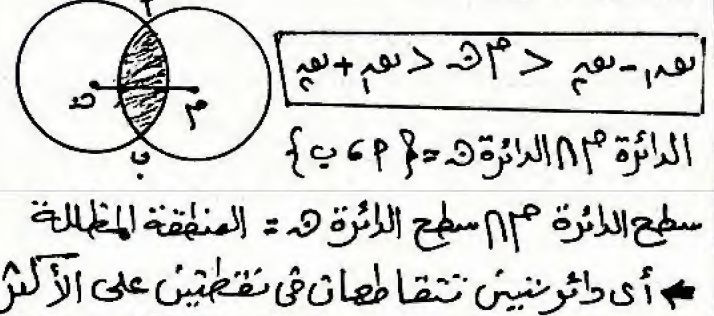 أ
ن م
ب
نق₁ - نق₂ < م ن < نق₁ + نق₂
الدائرة م ∩ الدائرة ن = {أ ، ب}
سطح الدائرة م ∩ سطح الدائرة ن = المنطقة المظللة
← أى دائرتين تتقاطعان فى نقطتين على الأكثر